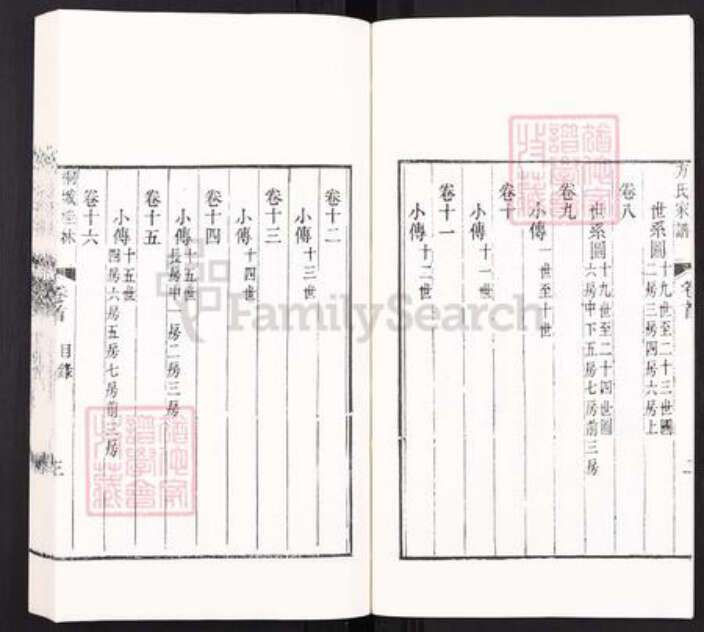 方氏家譜
卷首
二
世系圖 十九世至二十三世圖
二房三房四房六房上
卷八
世系圖 十九世至二十四世圖
六房中下五房七房前三房
卷九
小傳 一世至十世
卷十
小傳 十一世
卷十一
小傳 十二世
卷十二
小傳 十三世
卷十三
小傳 十四世
卷十四
小傳 十五世
長房中一房二房三房
卷十五
小傳 十五世
四房六房五房七房前三房
卷十六
桐城桂林
卷首 目錄
三
FamilySearch